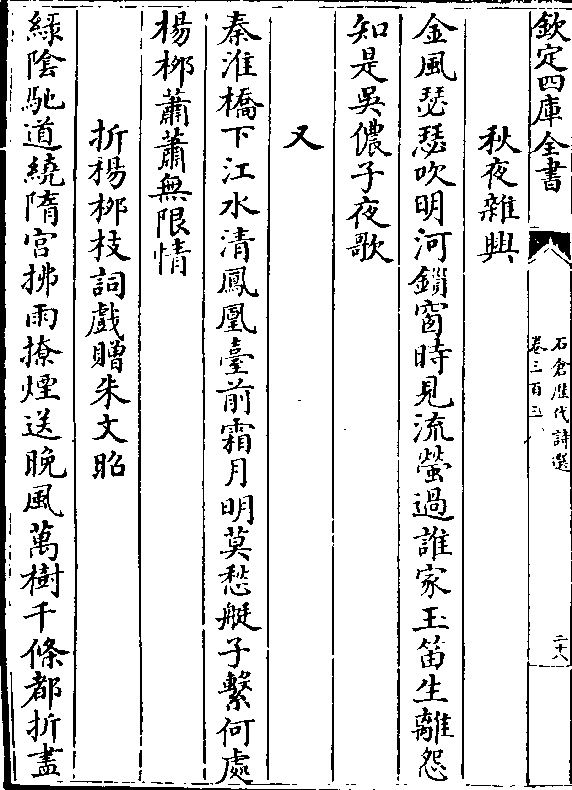 欽定四庫全書
石倉歷代詩選
卷三百三
二十八
秋夜雜興
金風瑟瑟吹明河鎻窗時見流螢過誰家玉笛生離怨
知是吳儂子夜歌
又
秦淮橋下江水清鳳凰臺前霜月明莫愁艇子繫何處
楊栁蕭蕭無限情
折楊栁枝詞戲贈朱文昭
緑陰馳道繞隋宫拂雨撩煙送晚風萬樹千條都折盡